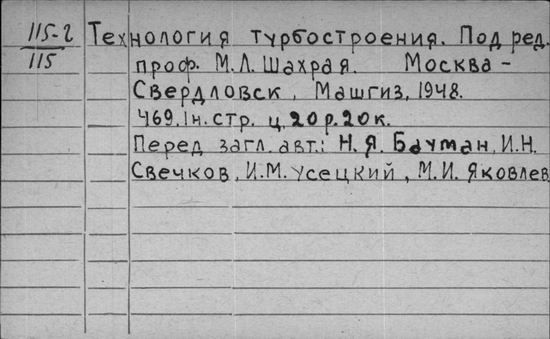 115-2 Технология турбостроения. Под ред.
115 проф. М.Л. Шахрая. Москва -
Свердловск, Машгиз, 1948.
469.1н. стр. ц. 20 р. 20 к.
Перед загл. авт.: Н.Я. Бауман, И.Н.
Свечков, И.М. Усецкий, М.И. Яковлев